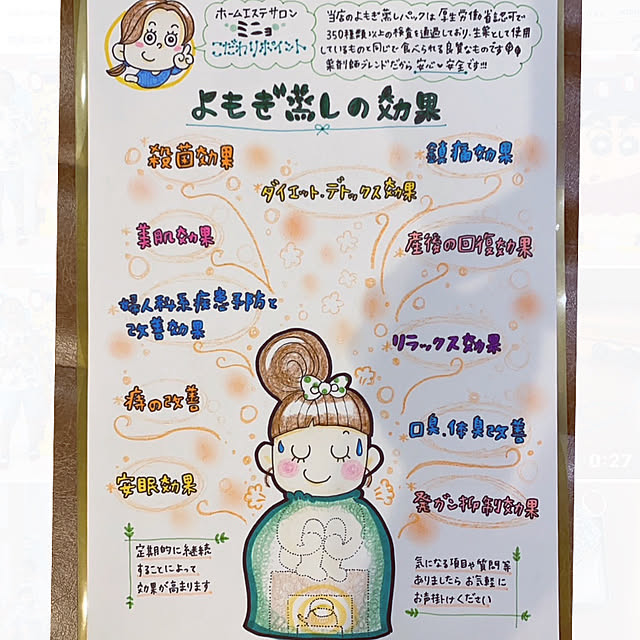 ホームエステサロン
ミニョ
こだわりポイント
当店のよもぎ蒸しパックは厚生労働省認可で
350種類以上の検査を通過しており、生薬として使用
しているものと同じで食べられる良質なものです
薬剤師ブレンドだから安心♥安全です!!!
よもぎ蒸しの効果
殺菌効果
鎮痛効果
ダイエット・デトックス効果
美肌効果
産後の回復効果
婦人科系疾患予防と
改善効果
リラックス効果
痔の改善
口臭、体臭改善
安眠効果
発ガン抑制効果
定期的に継続
することによって
効果が高まります
気になる項目や質問等
ありましたらお気軽に
お声掛けください
0:27